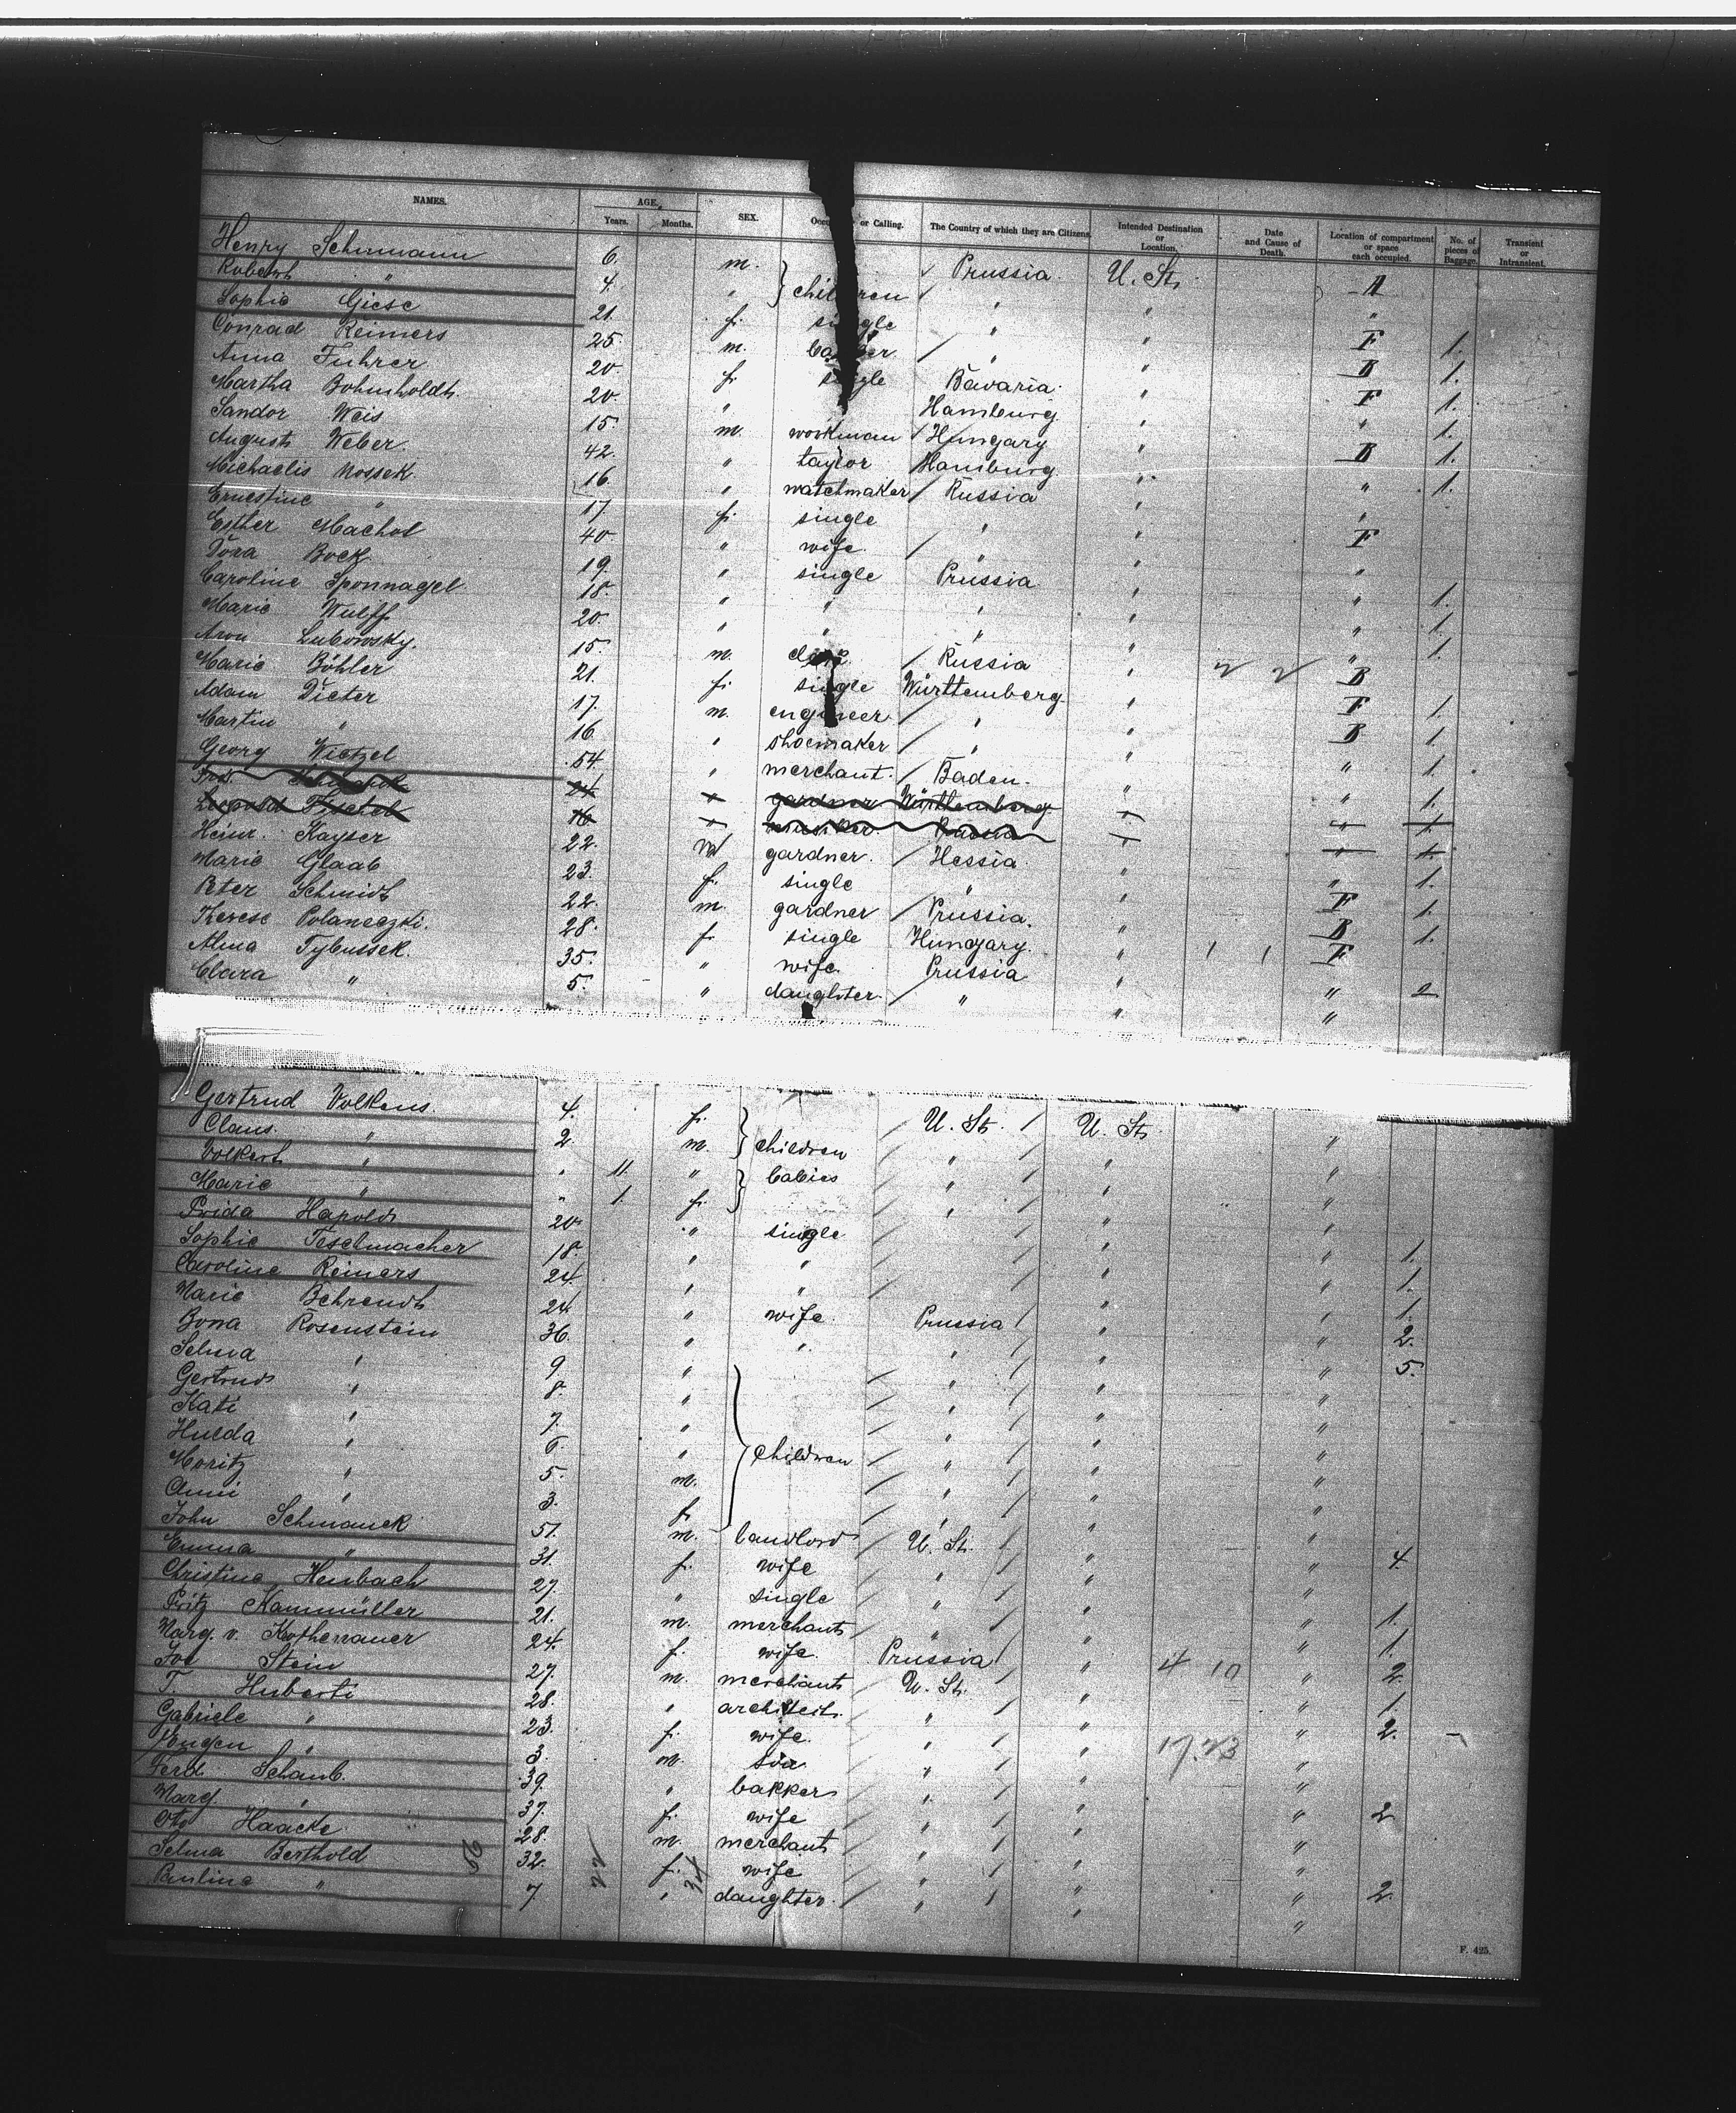 NAMES. AGE. Years. Months. SEX. or Calling. The Country of which they are Citizens. Intended Destination or Location. Date and Cause of Death. Location of compartment or space each occupied. No. of pieces of Baggage. Transient or Intransient.
Henry Schumann 6. m. children Prussia U. St. A
Robert " 4. " " " "
Sophie Giese 21. f. single " " F 1.
Conrad Reimers 25. m. " " B 1.
Anna Fuhrer 20. f. single Bavaria " F 1.
Martha Bohmholdt 20. " Hamburg " " 1.
Sandor Weis 15. m. workman Hungary " B 1.
August Weber 42. " taylor Hamburg " " 1.
Michaelis Mossek 16. " watchmaker Russia " "
Ernestine " 17. f. single " " F
Esther Machol 40. " wife " " "
Dora Bock 19. " single Prussia " " 1.
Caroline Sponnagel 18. " " " " " 1.
Marie Wulff 20. " " " " " 1.
Aron Lubowsky. 15. m. Russia " 2 2 B
Marie Böhler 21. f. single Württemberg " F 1.
Adam Dieter 17. m. engineer " " B 1.
Martin " 16. " shoemaker " " " 1.
Georg Wietzel 54. " merchant. Baden. " " 1.
21 " gardner Württemberg " " 1.
Leopold 16 " " " 1.
Heinr. Kayser 22. m gardner. Hessia. " " 1.
Marie Glaab 23. f. single " " F 1.
Peter Schmidt 22. m. gardner Prussia. " B 1.
Therese 28. f. single Hungary. " 1 1 F
Alma Tybussek. 35. " wife. Prussia " " 2
Clara " 5. " daughter. " " "
Gertrud Volkens. 4. f. children U. St. U. St. "
Claus. " 2. m. " " "
Volkert " " 11. " babies " " "
Marie " " 1. f. " " "
Frida Hapold 20. " single " " " 1.
Sophie Teselmacher 18. " " " " " 1.
Caroline Reiners 24. " " " " " 1.
Marie Behrendt 24. " wife. Prussia " " 2.
Bona Rosenstein 36. " " " " " 5.
Selma " 9. " children " " "
Gertrud " 8. " " " "
Kati " 7. " " " "
Hulda " 6. " " " "
Moritz " 5. m. " " "
Anni " 3. f. " " "
John Schmauck 51. m. landlord U. St. " " 4.
Emma " 31. f. wife " " "
Christine Heubach 27. " single " " " 1.
Fritz Kammüller 21. m. merchant " " " 1.
Marg. v. Kothenauer 24. f. wife. Prussia " 4 10 " 2.
Joe Stein 27. m. merchant U. St. " " 1.
T. Huberti 28. " architect. " " " 2.
Gabriele " 23. f. wife. " " 17. 23 "
Eugen " 3. m. son " " "
Ferd. Schaub. 39. " bakker " " " 2
Marg " 37. f. wife " " "
Otto Haacke. 28. m. merchant " " "
Selma Berthold 32. f. wife " " " 2.
Pauline " 7. " daughter. " " "
F. 425.